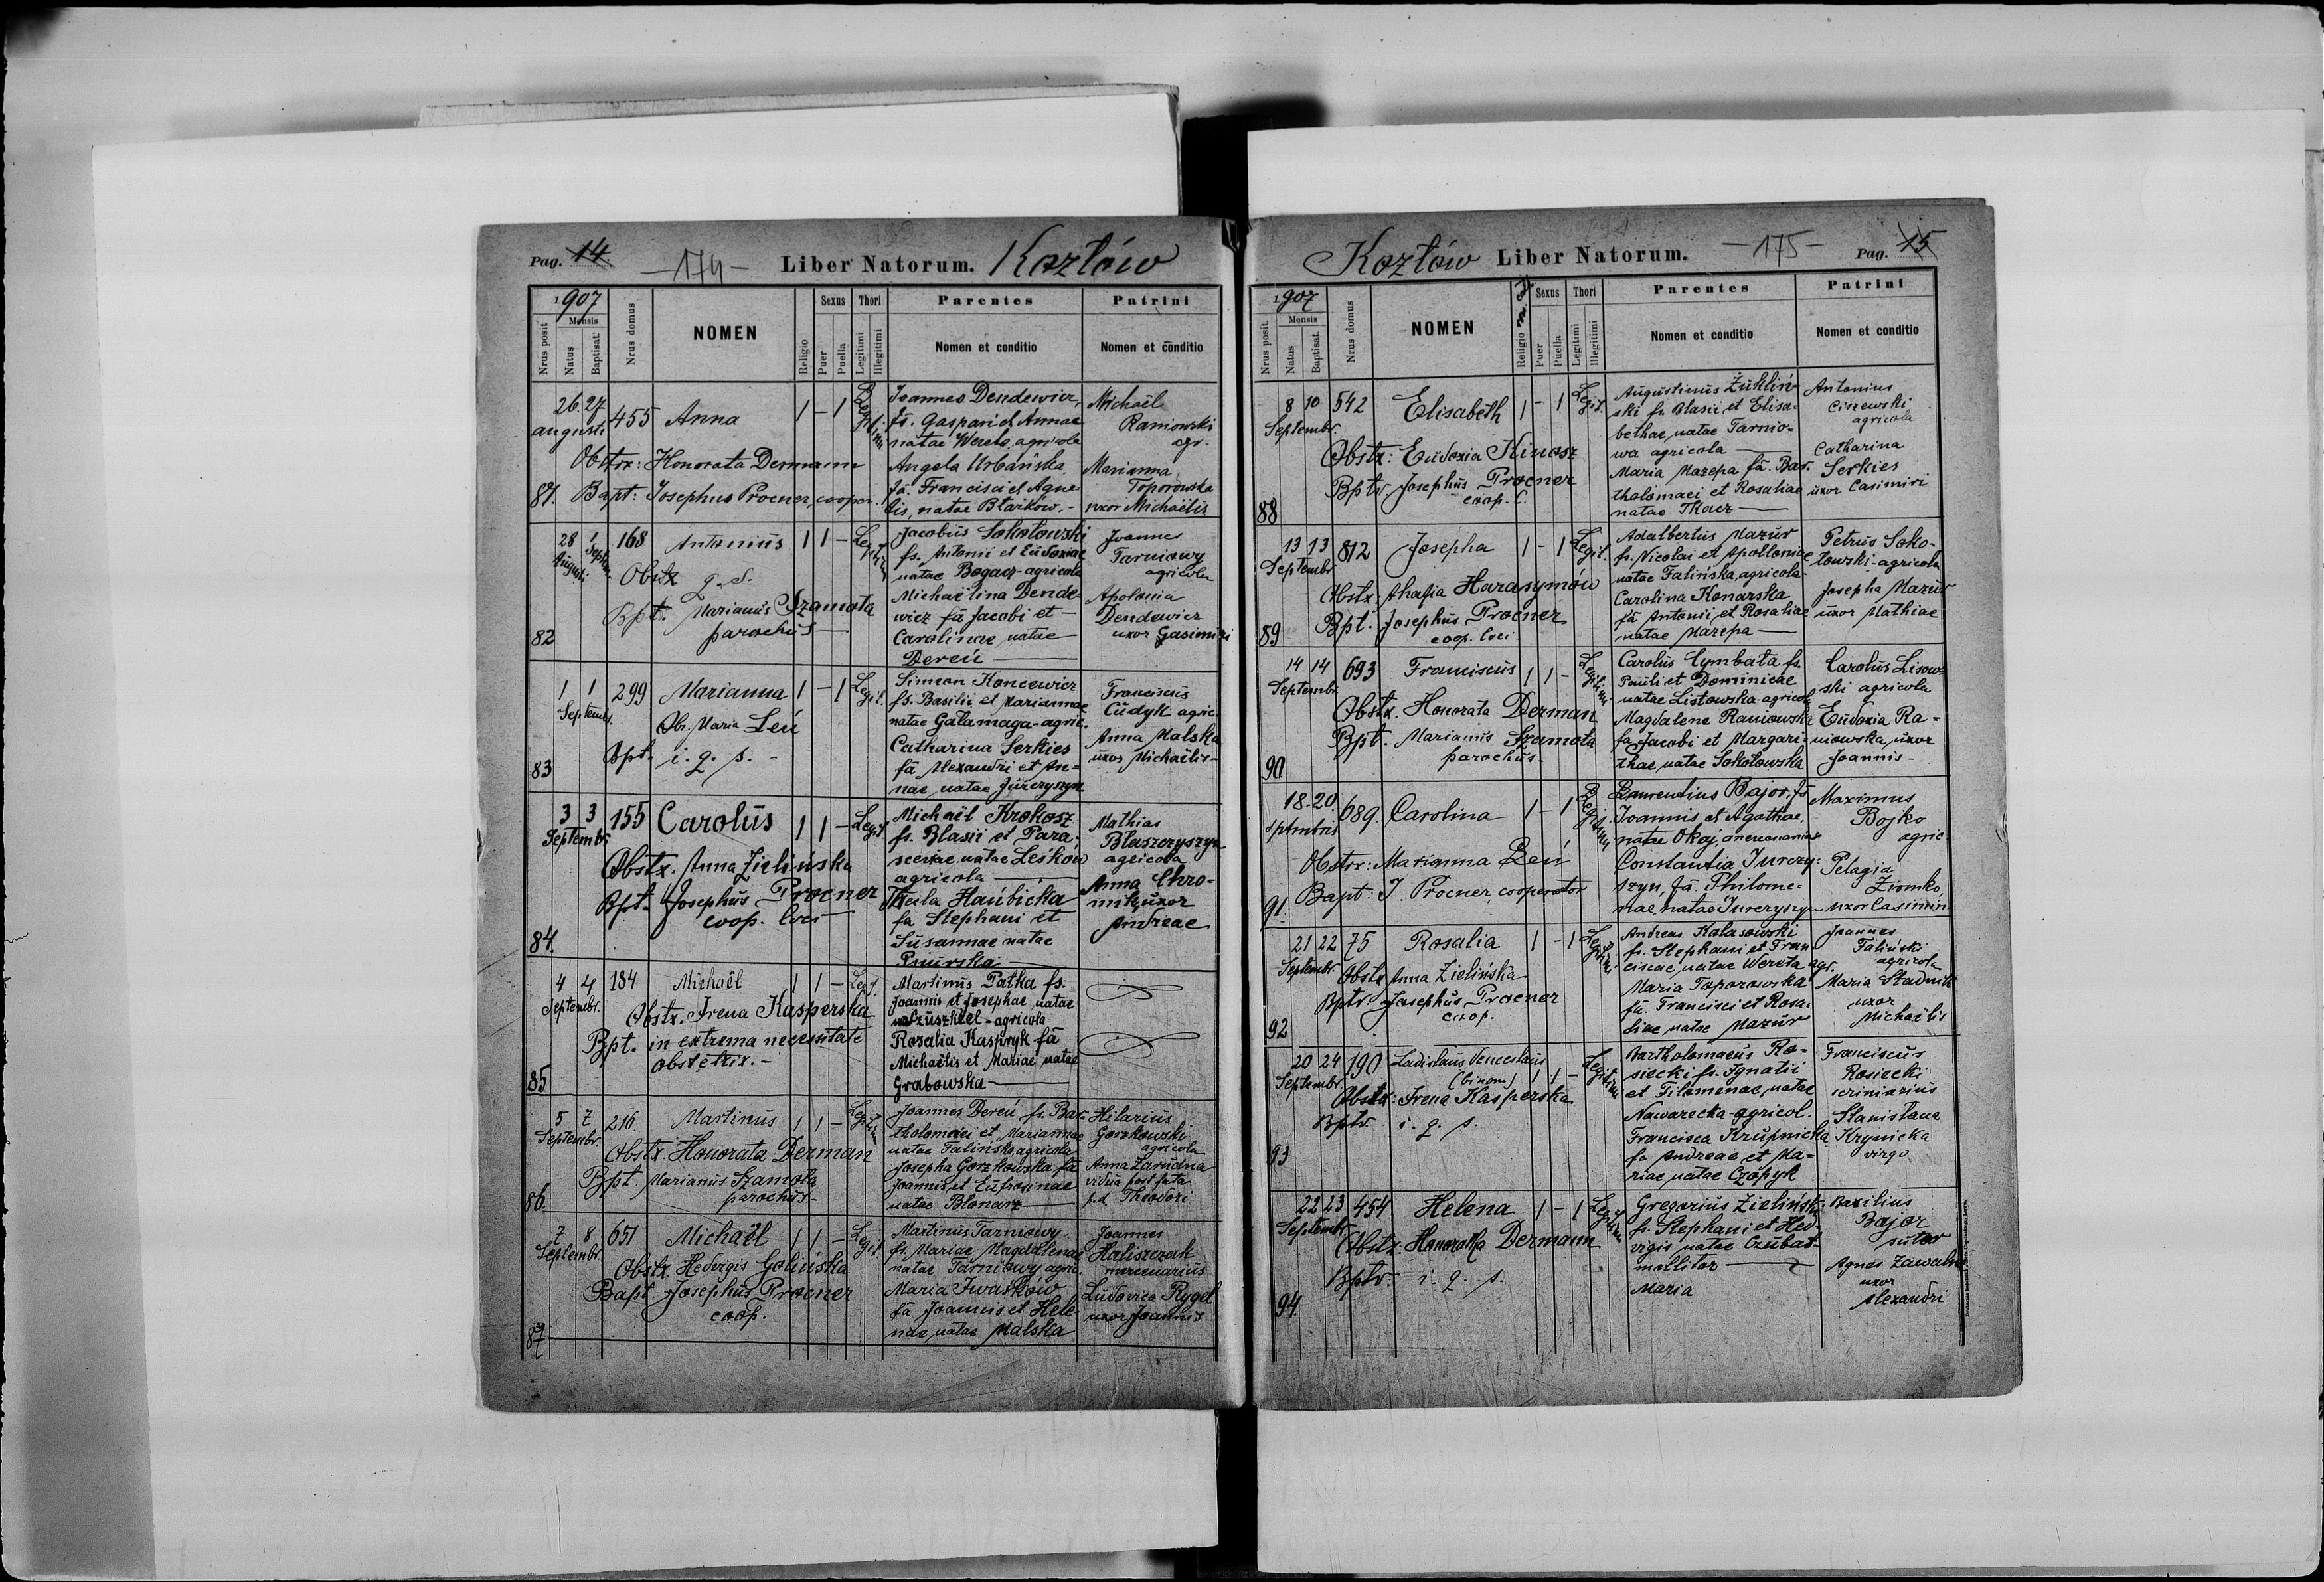 Pag. 14.
-174-
Liber Natorum. Kozłów
1907
Nrus posit
Mensis
Natus
Baptisat.
Nrus domus
NOMEN
Religio
Sexus
Puer
Puella
Thori
Legitimi
Illegitimi
Parentes
Nomen et conditio
Patrini
Nomen et conditio
26. 27
augusti
455 Anna 1 - 1 Legitim
Obstrx: Honorata Dermann
81. Bapt: Josephus Procner, cooper.
Joannes Dendewicz,
fs. Gaspari et Annae
natae Wereta, agricola
Angela Urbańska,
fa. Francisci et Agne-
tis, natae Błaików.-
Michaël
Raniowski
agr.
Marianna
Toporowska
uxor Michaëlis
28 1
Augusti Septem.
168 Antonius 1 1 - Legitim
Obstx q. s.
Bpt. Marianus Szamota
parochus
82
Jacobus Sokołowski
fs. Antonii et Eudoxiae
natae Bogacz - agricola
Michaëlina Dende-
wicz fa Jacobi et
Carolinae, natae
Dereń
Joannes
Tarniowy
agricola
Apolonia
Dendewicz
uxor Casimiri
1 1
Septembr.
299 Marianna 1 - 1 Legit.
Ob. Maria Leń
Bpt. i. q. s. -
83
Simeon Koncewicz
fs. Basilii et Mariannae
natae Gałamaga - agric.
Catharina Serkies
fa Alexandri et An=
nae, natae Jurczyszyn
Franciscus
Cudyk agric.
Anna Malska
uxor Michaëlis-
3 3
Septembr.
155 Carolus 1 1 - Legit.
Obstx. Anna Zielińska
Bpt. Josephus Procner
coop. loci
84.
Michaël Krokosz
fs. Blasii et Para-
sceviae natae Leśków
agricola
Thecla Haubicka
fa Stephani et
Susannae natae
Pniurska
Mathias
Błaszczyszyn
agricola
Anna Chro-
mity, uxor
Andreae
4 4
Septembr.
184 Michaël 1 1 - Legit.
Obstx. Irena Kasperska
Bpt. in extrema necessitate
obstetrix. -
85
Martinus Patka fs.
Joannis et Josephae natae
agricola
Rosalia Kaspryk fa
Michaëlis et Mariae, natae
Grabowska
5 7
Septembr.
216 Martinus 1 1 - Legitim
Obstx Honorata Derman
Bpt. Marianus Szamota
parochus-
86.
Joannes Dereń fs. Bar-
tholomaei et Mariannae
natae Falińska agricola
Josepha Gorzkowska, fa
Joannis et Eufrosinae
natae Błonarz
Hilarius
Gorzkowski
agricola
Anna Zarudna
vidua post fata
p.d. Theodori
7 8
Septembr.
651 Michaël 1 1 - Legit.
Obstx. Hedvigis Golińska
Bapt. Josephus Procner
coop.
87
Martinus Tarniowy
fs. Mariae Magdalenae
natae Tarniowy agric.
Maria Iwaśków
fa Joannis et Hele-
nae, natae Malska
Joannes
Haliszczak
mercenarius
Ludovica Rygel
uxor Joannis
Kozłów Liber Natorum.
-175-
Pag. 15
1907
Nrus posit.
Mensis
Natus
Baptisat.
Nrus domus
NOMEN
Religio
Sexus
Puer
Puella
Thori
Legitimi
Illegitimi
Parentes
Nomen et conditio
Patrini
Nomen et conditio
8 10
Septembr.
542 Elisabeth 1 - 1 Legit.
Obstx: Eudoxia Kinasz
Bptr. Josephus Procner
coop. l.
88
Augustinus Żukliń-
ski fs. Blasii, et Elisa-
bethae, natae Tarnio-
wa agricola
Maria Mazepa fa. Bar-
tholomaei et Rosaliae
natae Tkacz
Antonius
Ciszewski
agricola
Catharina
Serkies
uxor Casimiri
13 13
Septembr
812 Josepha 1 - 1 Legit.
Obstx. Ahafia Harasymów
Bpt. Josephus Procner
coop. loci
89
Adalbertus Mazur
fs. Nicolai et Apolloniae
natae Falińska, agricola-
Carolina Konarska
fa Antonii, et Rosaliae
natae Mazepa
Petrus Soko-
łowski - agricola
Josepha Mazur
uxor Mathiae
14 14
Septembr.
693 Franciscus 1 1 - Legitim
Obstx. Honorata Derman
Bpt. Marianus Szamota
parochus-
90
Carolus Cymbała fs.
Pauli et Dominicae
natae Listowska - agricola
Magdalena Raniowska
fa Jacobi et Margari-
thae, natae Sokołowska
Carolus Lisow-
ski agricola
Eudoxia Ra-
niowska, uxor
Joannis-
18. 20.
Sptmbris
689. Carolina 1 - 1 Legitim
Obstrx: Marianna Leń
Bapt: J. Procner, cooperator
91.
Laurentius Bajor, fs
Joannis et Agathae,
natae Okaj, mercenarius
Constantia Jurczy-
szyn, fa. Philome-
nae, natae Jurczyszyn
Maximus
Bojko
agric.
Pelagia
Ziomko,
uxor Casimiri
21 22
Septembr.
75 Rosalia 1 - 1 Legitim.
Obstx Anna Zielińska
Bptr. Josephus Procner
coop.
92
Andreas Kolasowski
fs. Stephani et Fran-
ciscae, natae Wereta agr.
Maria Toporowska
fa. Francisci et Rosa-
liae natae Mazur
Joannes
Faliński
agricola
Maria Stadnik
uxor
Michaëlis
20 24
Septembr.
190 Ladislaus Venceslaus
(binom) 1 1 - Legitim
Obstx: Irena Kasperska
Bptr. i. q. s.
93
Bartholomaeus Ro-
siecki fs. Ignatii
et Filomenae, natae
Nawarecka - agricol.
Francisca Krupnicka
fa Andreae et Ma-
riae natae Czopyk
Franciscus
Rosiecki
scriniarius
Stanislava
Krynicka
virgo
22 23
Septembr.
454 Helena 1 - 1 Legitim
Obstx. Honorata Dermann
Bptr. i. q. s.
94.
Gregorius Zieliński
fs. Stephani et Hed-
vigis natae Czubat-
mollitor
Maria
Basilius
Bajor
sutor
Agnes Zawalna
uxor
Alexandri